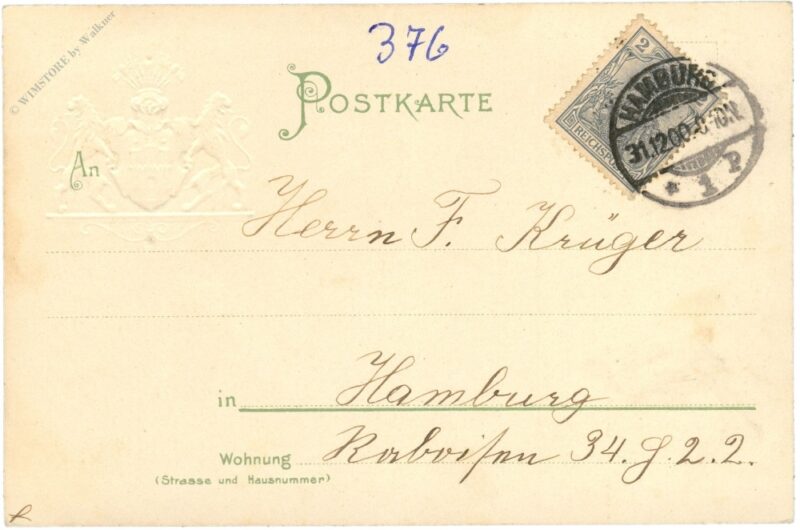 © WIMSTORE by Walkner
376
2
POSTKARTE
REICHSP
HAMBURG
31.12.00.
* 1 P
An
Herrn F. Krüger
in Hamburg
Wohnung Raboisen 34. H. 2.2.
(Strasse und Hausnummer)